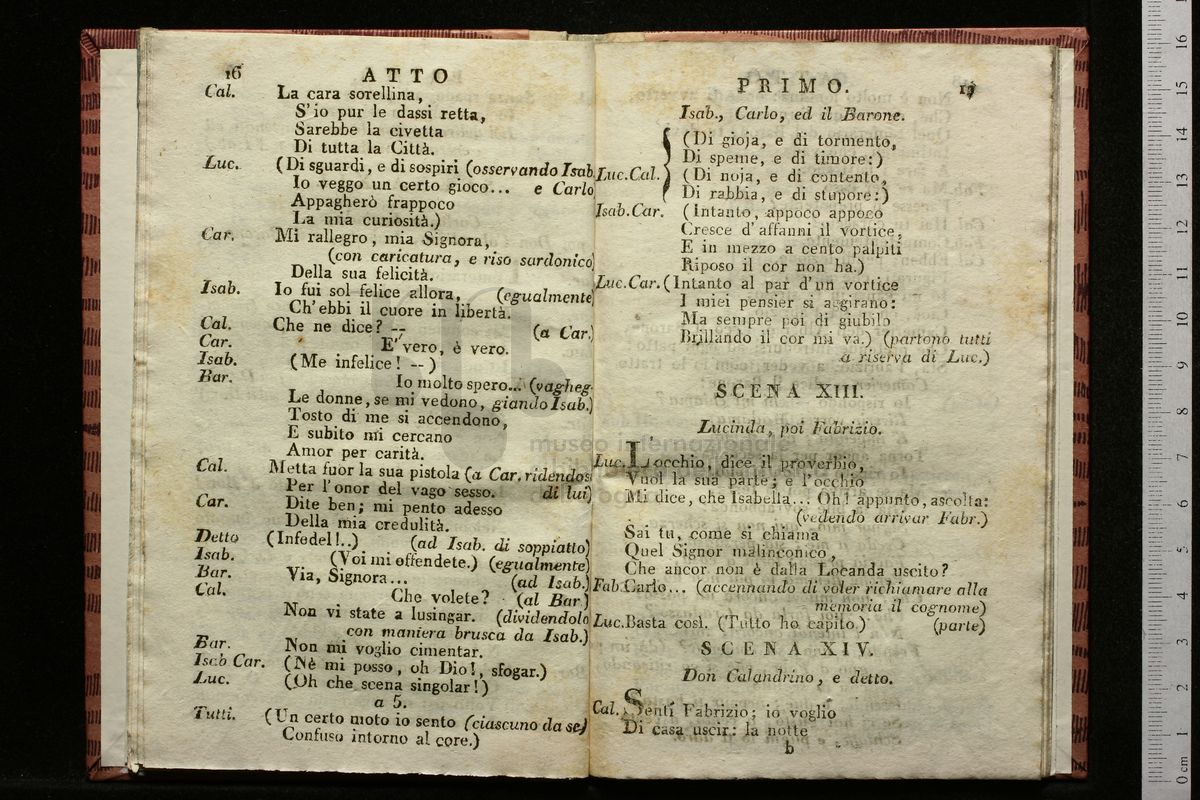 16 ATTO
Cal. La cara sorellina,
S'io pur le dassi retta,
Sarebbe la civetta
Di tutta la Città.
Luc. (Di sguardi, e di sospiri (osservando Isab.
Io veggo un certo gioco... e Carlo
Appagherò frappoco
La mia curiosità.)
Car. Mi rallegro, mia Signora,
(con caricatura, e riso sardonico)
Della sua felicità.
Isab. Io fui sol felice allora, (egualmente
Ch'ebbi il cuore in libertà.
Cal. Che ne dice? -- (a Car.)
Car. E' vero, è vero.
Isab. (Me infelice! --)
Bar. Io molto spero... (vagheg-
Le donne, se mi vedono, giando Isab.)
Tosto di me si accendono,
E subito mi cercano
Amor per carità.
Cal. Metta fuor la sua pistola (a Car. ridendosi
Per l'onor del vago sesso. di lui)
Car. Dite ben; mi pento adesso
Della mia credulità.
Detto (Infedel!..) (ad Isab. di soppiatto)
Isab. (Voi mi offendete.) (egualmente)
Bar. Via, Signora... (ad Isab.)
Cal. Che volete? (al Bar.)
Non vi state a lusingar. (dividendolo
con maniera brusca da Isab.)
Bar. Non mi voglio cimentar.
Isab Car. (Nè mi posso, oh Dio!, sfogar.)
Luc. (Oh che scena singolar!)
a 5.
Tutti. (Un certo moto io sento (ciascuno da se)
Confuso intorno al core.)
PRIMO. 17
Isab., Carlo, ed il Barone.
(Di gioja, e di tormento,
Di speme, e di timore:)
Luc. Cal. (Di noja, e di contento,
Di rabbia, e di stupore:)
Isab. Car. (Intanto, appoco appoco
Cresce d'affanni il vortice,
E in mezzo a cento palpiti
Riposo il cor non ha.)
Luc. Car. (Intanto al par d'un vortice
I miei pensier si aggirano:
Ma sempre poi di giubilo
Brillando il cor mi va.) (partono tutti
a riserva di Luc.)
SCENA XIII.
Lucinda, poi Fabrizio.
Luc. L'occhio, dice il proverbio,
Vuol la sua parte; e l'occhio
Mi dice, che Isabella... Oh! appunto, ascolta:
(vedendo arrivar Fabr.)
Sai tu, come si chiama
Quel Signor malinconico,
Che ancor non è dalla Locanda uscito?
Fab Carlo... (accennando di voler richiamare alla
memoria il cognome)
Luc. Basta così. (Tutto ho capito.) (parte)
SCENA XIV.
Don Calandrino, e detto.
Cal. Senti Fabrizio; io voglio
Di casa uscir: la notte
b
museo internazionale